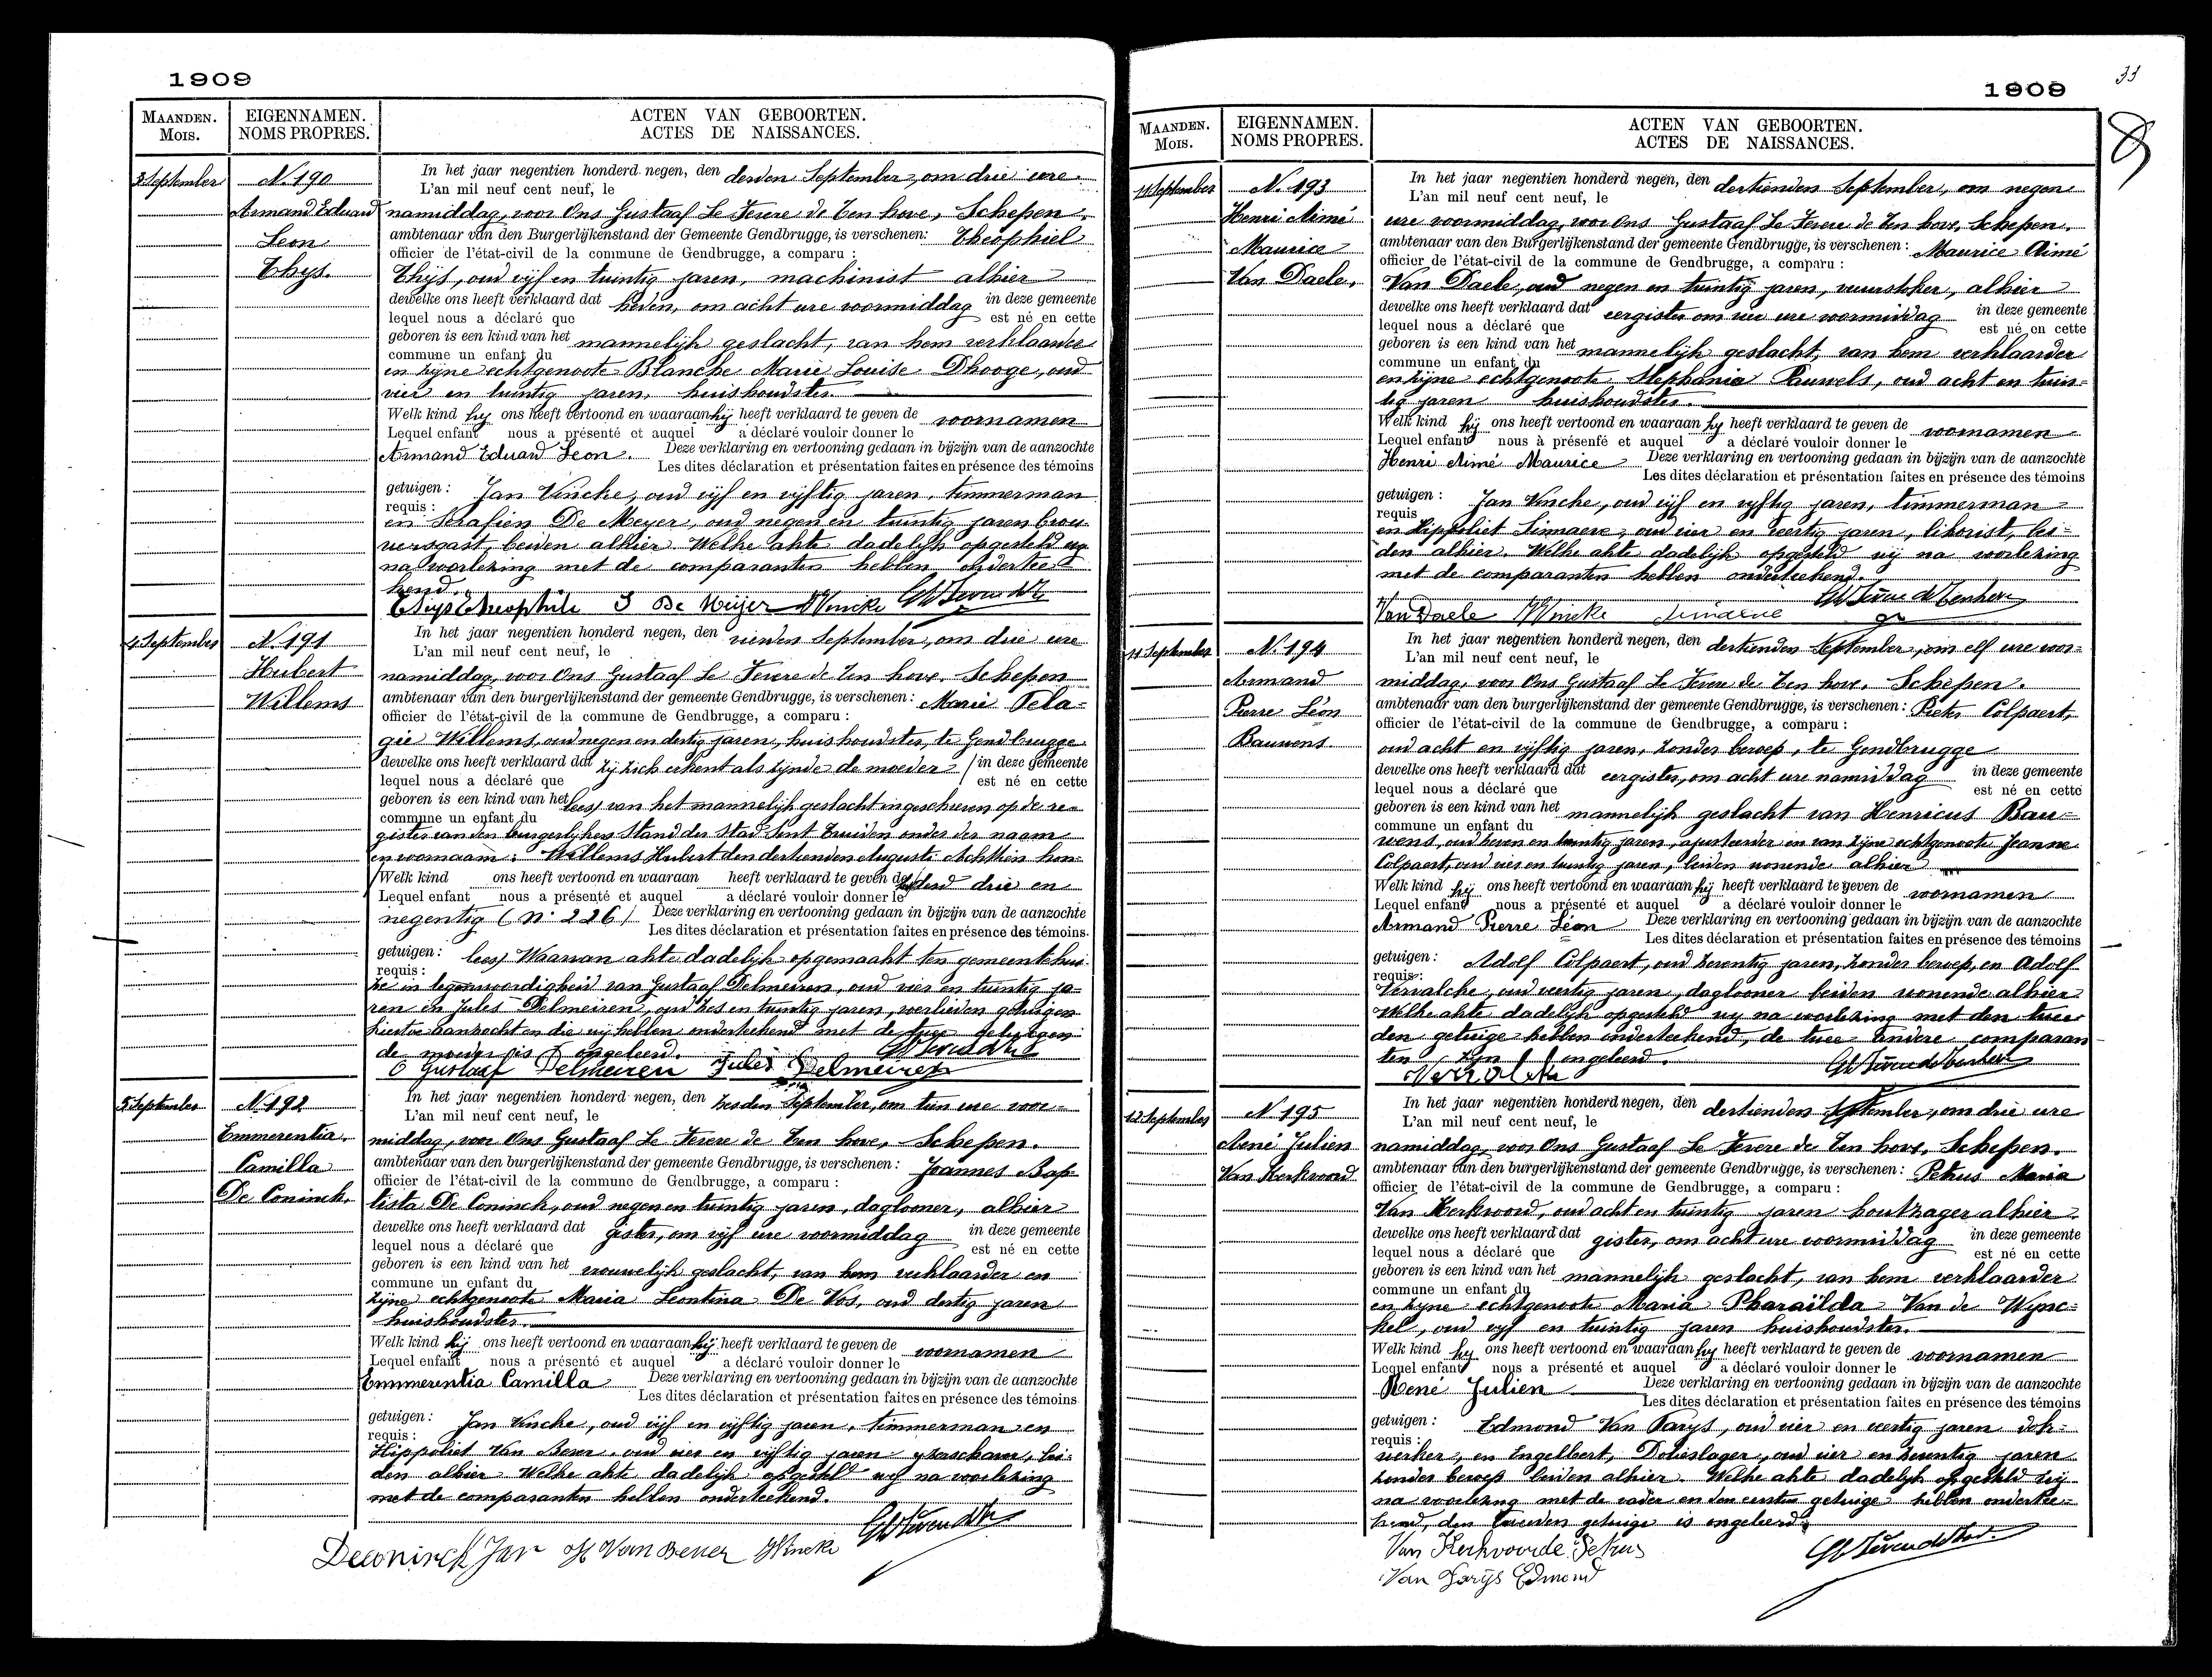 1909
MAANDEN. EIGENNAMEN. ACTEN VAN GEBOORTEN.
MOIS. NOMS PROPRES. ACTES DE NAISSANCES.
3 September N. 190 In het jaar negentien honderd negen, den derden September, om drie ure
L'an mil neuf cent neuf, le
Armand Eduard namiddag, voor Ons Gustaaf Le Fevere de Ten hove, Schepen.
Leon ambtenaar van den Burgerlijkenstand der Gemeente Gendbrugge, is verschenen: Theophiel
officier de l'état-civil de la commune de Gendbrugge, a comparu :
Thys. Thijs, oud vijf en twintig jaren, machinist alhier
dewelke ons heeft verklaard dat heden, om acht ure voormiddag in deze gemeente
lequel nous a déclaré que est né en cette
geboren is een kind van het mannelijk geslacht, van hem verklaarder
commune un enfant du
en zijne echtgenoote Blanche Marie Louise Dhooge, oud
vier en twintig jaren, huishoudster.
Welk kind hij ons heeft vertoond en waaraan hij heeft verklaard te geven de voornamen
Lequel enfant nous a présenté et auquel a déclaré vouloir donner le
Armand Eduard Leon. Deze verklaring en vertooning gedaan in bijzijn van de aanzochte
Les dites déclaration et présentation faites en présence des témoins
getuigen : Jan Vincke, oud vijf en vijftig jaren, timmerman
requis :
en Serafien De Meyer, oud negen en twintig jaren brou-
wersgast, beiden alhier Welke akte dadelijk opgesteld wij
na voorlezing met de comparanten hebben ondertee-
kend.
Thijs Theophile S De Meijer JVincke
4 September N. 191 In het jaar negentien honderd negen, den vierden September, om drie ure
L'an mil neuf cent neuf, le
Hubert namiddag, voor Ons Gustaaf Le Fevere de Ten hove, Schepen
Willems ambtenaar van den burgerlijkenstand der gemeente Gendbrugge, is verschenen: Marie Pela-
officier de l'état-civil de la commune de Gendbrugge, a comparu :
gie Willems, oud negen en dertig jaren, huishoudster, te Gendbrugge
dewelke ons heeft verklaard dat zij zich erkent als zijnde de moeder / in deze gemeente
lequel nous a déclaré que est né en cette
geboren is een kind van het lees) van het mannelijk geslacht ingeschreven op de re-
commune un enfant du
gisters van den burgerlijken Stand der Stad Sint Truiden onder den naam
en voornaam: Willems Hubert den dertienden Augusti Achttien hon-
/ Welk kind ons heeft vertoond en waaraan heeft verklaard te geven de / derd drie en
Lequel enfant nous a présenté et auquel a déclaré vouloir donner le
negentig (N. 226 / Deze verklaring en vertooning gedaan in bijzijn van de aanzochte
Les dites déclaration et présentation faites en présence des témoins.
getuigen: lees) Waarvan akte dadelijk opgemaakt ten gemeentehui-
requis :
ze in tegenwoordigheid van Gustaaf Delmeiren, oud vier en twintig ja-
ren en Jules Delmeiren, oud zes en twintig jaren, werklieden getuigen
hiertoe aanzocht en die wij hebben onderteekend met de twee getuigen
de moeder is ongeleerd.
Gustaaf Delmeiren Jules Delmeiren
5 September N. 192 In het jaar negentien honderd negen, den zesden September, om tien ure voor-
L'an mil neuf cent neuf, le
Emmerentia middag, voor Ons Gustaaf Le Fevere de Ten hove, Schepen.
Camilla ambtenaar van den burgerlijkenstand der gemeente Gendbrugge, is verschenen: Joannes Bap-
officier de l'état-civil de la commune de Gendbrugge, a comparu :
De Coninck. tista De Coninck, oud negen en twintig jaren, daglooner, alhier
dewelke ons heeft verklaard dat gister, om vijf ure voormiddag in deze gemeente
lequel nous a déclaré que est né en cette
geboren is een kind van het vrouwelijk geslacht, van hem verklaarder en
commune un enfant du
zijne echtgenoote Maria Leontina De Vos, oud dertig jaren
huishoudster.
Welk kind hij ons heeft vertoond en waaraan hij heeft verklaard te geven de voornamen
Lequel enfant nous a présenté et auquel a déclaré vouloir donner le
Emmerentia Camilla Deze verklaring en vertooning gedaan in bijzijn van de aanzochte
Les dites déclaration et présentation faites en présence des témoins
getuigen : Jan Vincke, oud vijf en vijftig jaren, timmerman en
requis :
Hippoliet Van Bever, oud vier en vijftig jaren bei-
den alhier Welke akte dadelijk opgesteld wij na voorlezing
met de comparanten hebben onderteekend.
Deconinck Jan H Van Bever JVincke
33
1909
MAANDEN. EIGENNAMEN. ACTEN VAN GEBOORTEN.
MOIS. NOMS PROPRES. ACTES DE NAISSANCES.
11 September N. 193 In het jaar negentien honderd negen, den dertienden September, om negen
L'an mil neuf cent neuf, le
Henri Aimé ure voormiddag, voor Ons Gustaaf Le Fevere de Ten hove, Schepen.
Maurice ambtenaar van den Burgerlijkenstand der gemeente Gendbrugge, is verschenen : Maurice Aimé
officier de l'état-civil de la commune de Gendbrugge, a comparu :
Van Daele. Van Daele, oud negen en twintig jaren, vuurstoker, alhier
dewelke ons heeft verklaard dat eergister om vier ure voormiddag in deze gemeente
lequel nous a déclaré que est né en cette
geboren is een kind van het mannelijk geslacht, van hem verklaarder
commune un enfant du
en zijne echtgenoote Stephania Pauwels, oud acht en twin-
tig jaren huishoudster.
Welk kind hij ons heeft vertoond en waaraan hij heeft verklaard te geven de voornamen
Lequel enfant nous à présenfé et auquel a déclaré vouloir donner le
Henri Aimé Maurice Deze verklaring en vertooning gedaan in bijzijn van de aanzochte
Les dites déclaration et présentation faites en présence des témoins
getuigen : Jan Vincke, oud vijf en vijftig jaren, timmerman
requis
en Hippoliet Simaere, oud vier en veertig jaren, likorist, bei-
den alhier. Welke akte dadelijk opgesteld wij na voorlezing
met de comparanten hebben onderteekend.
Van Daele JVincke
11 September N. 194 In het jaar negentien honderd negen, den dertienden September, om elf ure voor-
L'an mil neuf cent neuf, le
Armand middag, voor Ons Gustaaf Le Fevere de Ten hove, Schepen.
Pierre Léon ambtenaar van den burgerlijkenstand der gemeente Gendbrugge, is verschenen : Pieter Colpaert,
officier de l'état-civil de la commune de Gendbrugge, a comparu :
Bauwens oud acht en vijftig jaren, zonder beroep, te Gendbrugge
dewelke ons heeft verklaard dat eergister, om acht ure namiddag in deze gemeente
lequel nous a déclaré que est né en cette
geboren is een kind van het mannelijk geslacht van Henricus Bau-
commune un enfant du
wens, oud zeven en twintig jaren, ajusteerder en van zijne echtgenoote Jeanne
Colpaert, oud vier en twintig jaren, beiden wonende alhier
Welk kind hij ons heeft vertoond en waaraan hij heeft verklaard te geven de voornamen
Lequel enfant nous a présenté et auquel a déclaré vouloir donner le
Armand Pierre Léon Deze verklaring en vertooning gedaan in bijzijn van de aanzochte
Les dites déclaration et présentation faites en présence des témoins
getuigen: Adolf Colpaert, oud zeventig jaren, zonder beroep, en Adolf
requis:
Vervalcke, oud veertig jaren, daglooner beiden wonende alhier
Welke akte dadelijk opgesteld wij na voorlezing met den twee-
den getuige hebben onderteekend, de twee andere comparan
ten zijn ongeleerd.
12 September N. 195 In het jaar negentien honderd negen, den dertienden September, om drie ure
L'an mil neuf cent neuf, le
René Julien namiddag, voor Ons Gustaaf Le Fevere de Ten hove, Schepen.
Van Kerkvoord ambtenaar van den burgerlijkenstand der gemeente Gendbrugge, is verschenen : Petrus Maria
officier de l'état-civil de la commune de Gendbrugge, a comparu :
Van Kerkvoord, oud acht en twintig jaren houtzager alhier
dewelke ons heeft verklaard dat gister, om acht ure voormiddag in deze gemeente
lequel nous a déclaré que est né en cette
geboren is een kind van het mannelijk geslacht, van hem verklaarder
commune un enfant du
en zijne echtgenoote Maria Pharaïlda Van de Wync-
kel, oud vijf en twintig jaren huishoudster.
Welk kind hij ons heeft vertoond en waaraan hij heeft verklaard te geven de voornamen
Lequel enfant nous a présenté et auquel a déclaré vouloir donner le
René Julien Deze verklaring en vertooning gedaan in bijzijn van de aanzochte
Les dites déclaration et présentation faites en présence des témoins
getuigen : Edmond Van Parys, oud vier en veertig jaren dok-
requis :
werker, en Engelbert, Dotieslager, oud vier en zeventig jaren
zonder beroep beiden alhier. Welke akte dadelijk opgesteld wij
na voorlezing met de vader en den eersten getuige hebben ondertee-
kend, den tweeden getuige is ongeleerd.
Van Kerkvoorde Petrus
Van Parijs Edmond